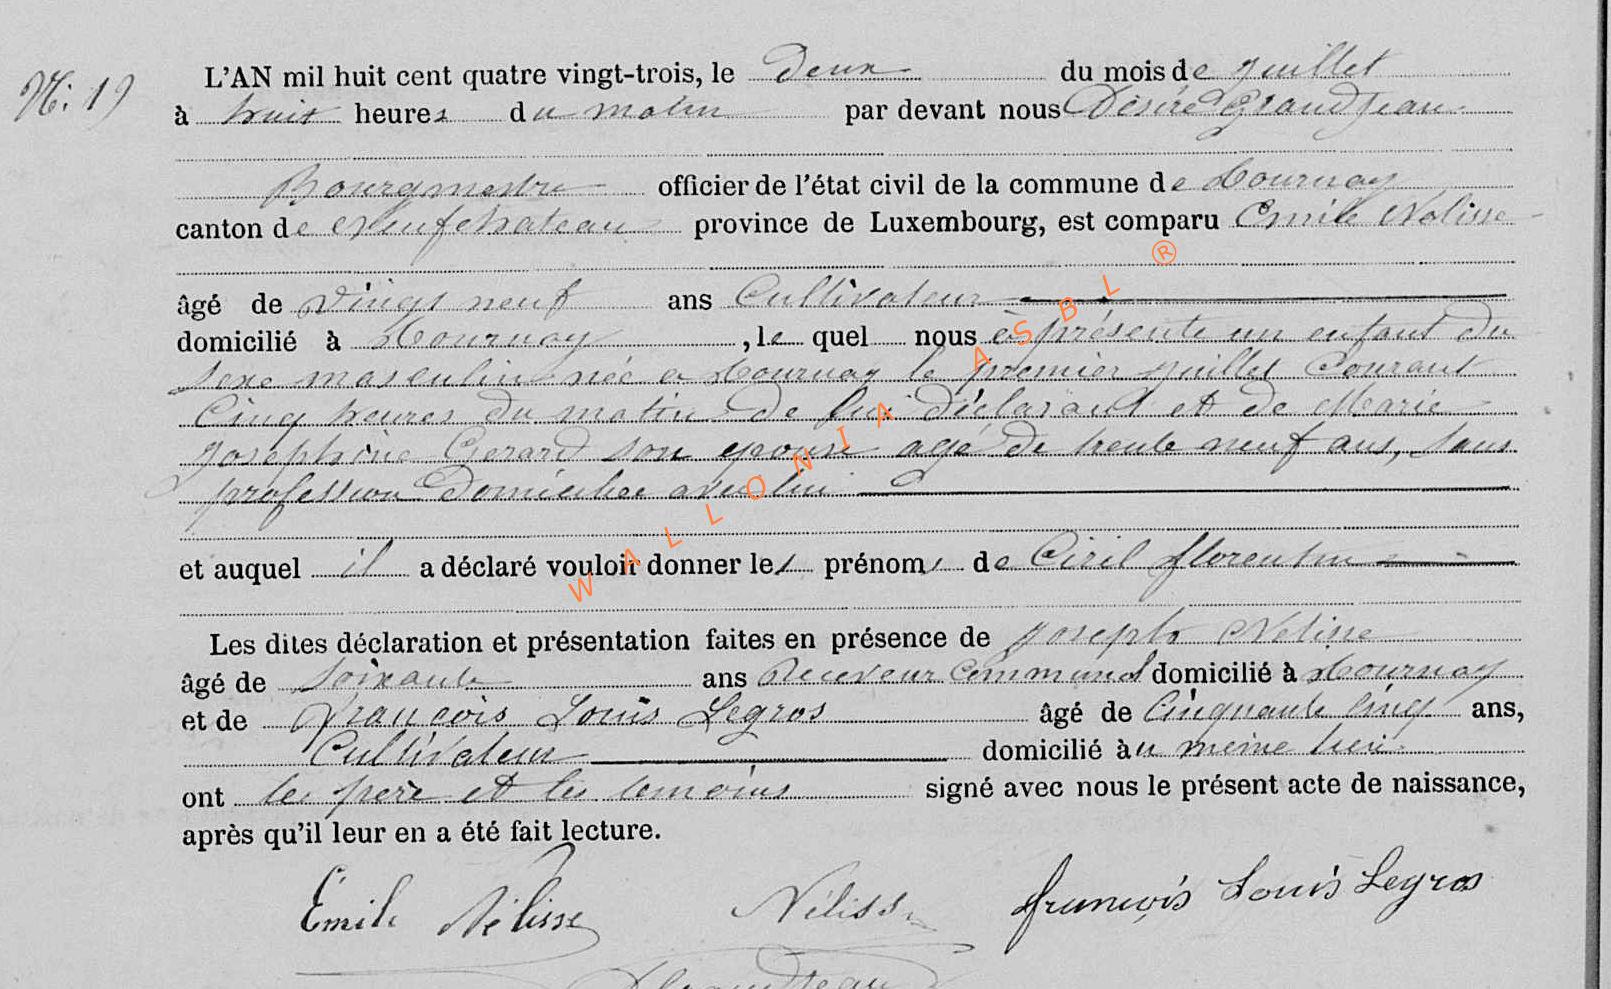 N: 19
L'AN mil huit cent quatre vingt-trois, le deux du mois de juillet
à huit heures du matin par devant nous Désiré Grandjean
Bourgmestre officier de l'état civil de la commune de Tournay
canton de Neufchateau province de Luxembourg, est comparu Emile Nelisse
âgé de vingt neuf ans Cultivateur
domicilié à Tournay, le quel nous à présenté un enfant du
sexe masculin née a Tournay le premier juillet Courant
Cinq heures du matin de lui déclarant et de Marie
Josephine Gerard son epouse agé de trente neuf ans, sans
profession Domiciliee avec lui
et auquel il a déclaré vouloir donner les prénoms de Ciril florentin
Les dites déclaration et présentation faites en présence de Joseph Nelisse
âgé de soixante ans Receveur Communal domicilié à Tournay
et de François Louis Legros âgé de Cinquante Cinq ans,
Cultivateur domicilié au meme lieu
ont le père et les temoins signé avec nous le présent acte de naissance,
après qu'il leur en a été fait lecture.
Emile Nélisse Néliss françois Louis Legros
DGrandjean
WALLONIA ASBL ®